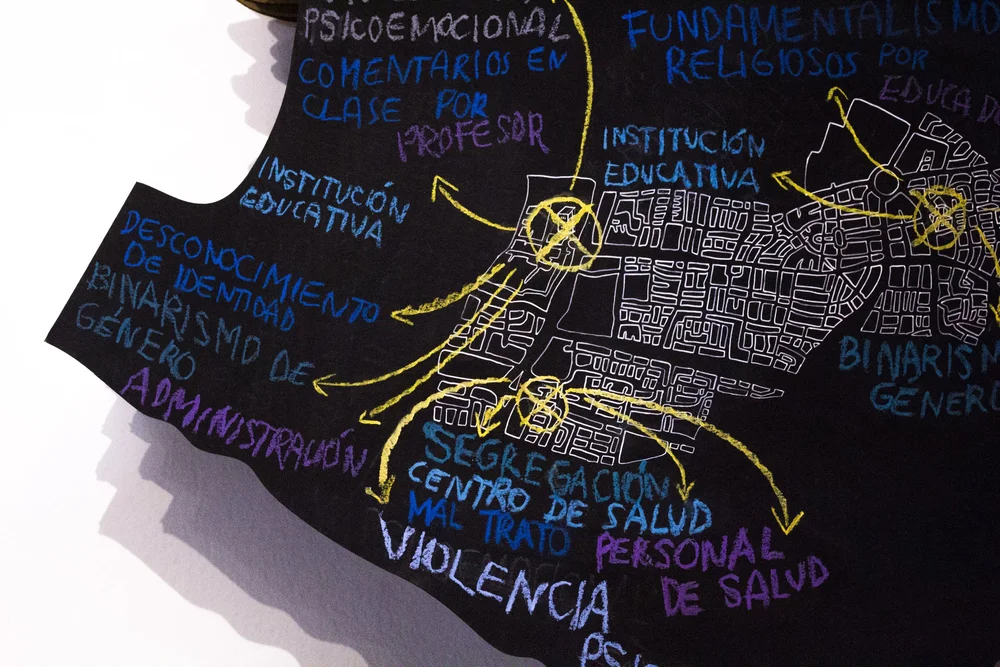 PSICOEMOCIONAL
COMENTARIOS EN
CLASE POR
PROFESOR
FUNDAMENTALISMO
RELIGIOSOS POR
INSTITUCIÓN
EDUCATIVA
INSTITUCIÓN
EDUCATIVA
DESCONOCIMIENTO
DE IDENTIDAD
BINARISMO DE
GÉNERO
ADMINISTRACIÓN
BINARISM
GÉNERO
SEGREGACIÓN
CENTRO DE SALUD
MAL TRATO
PERSONAL
DE SALUD
VIOLENCIA